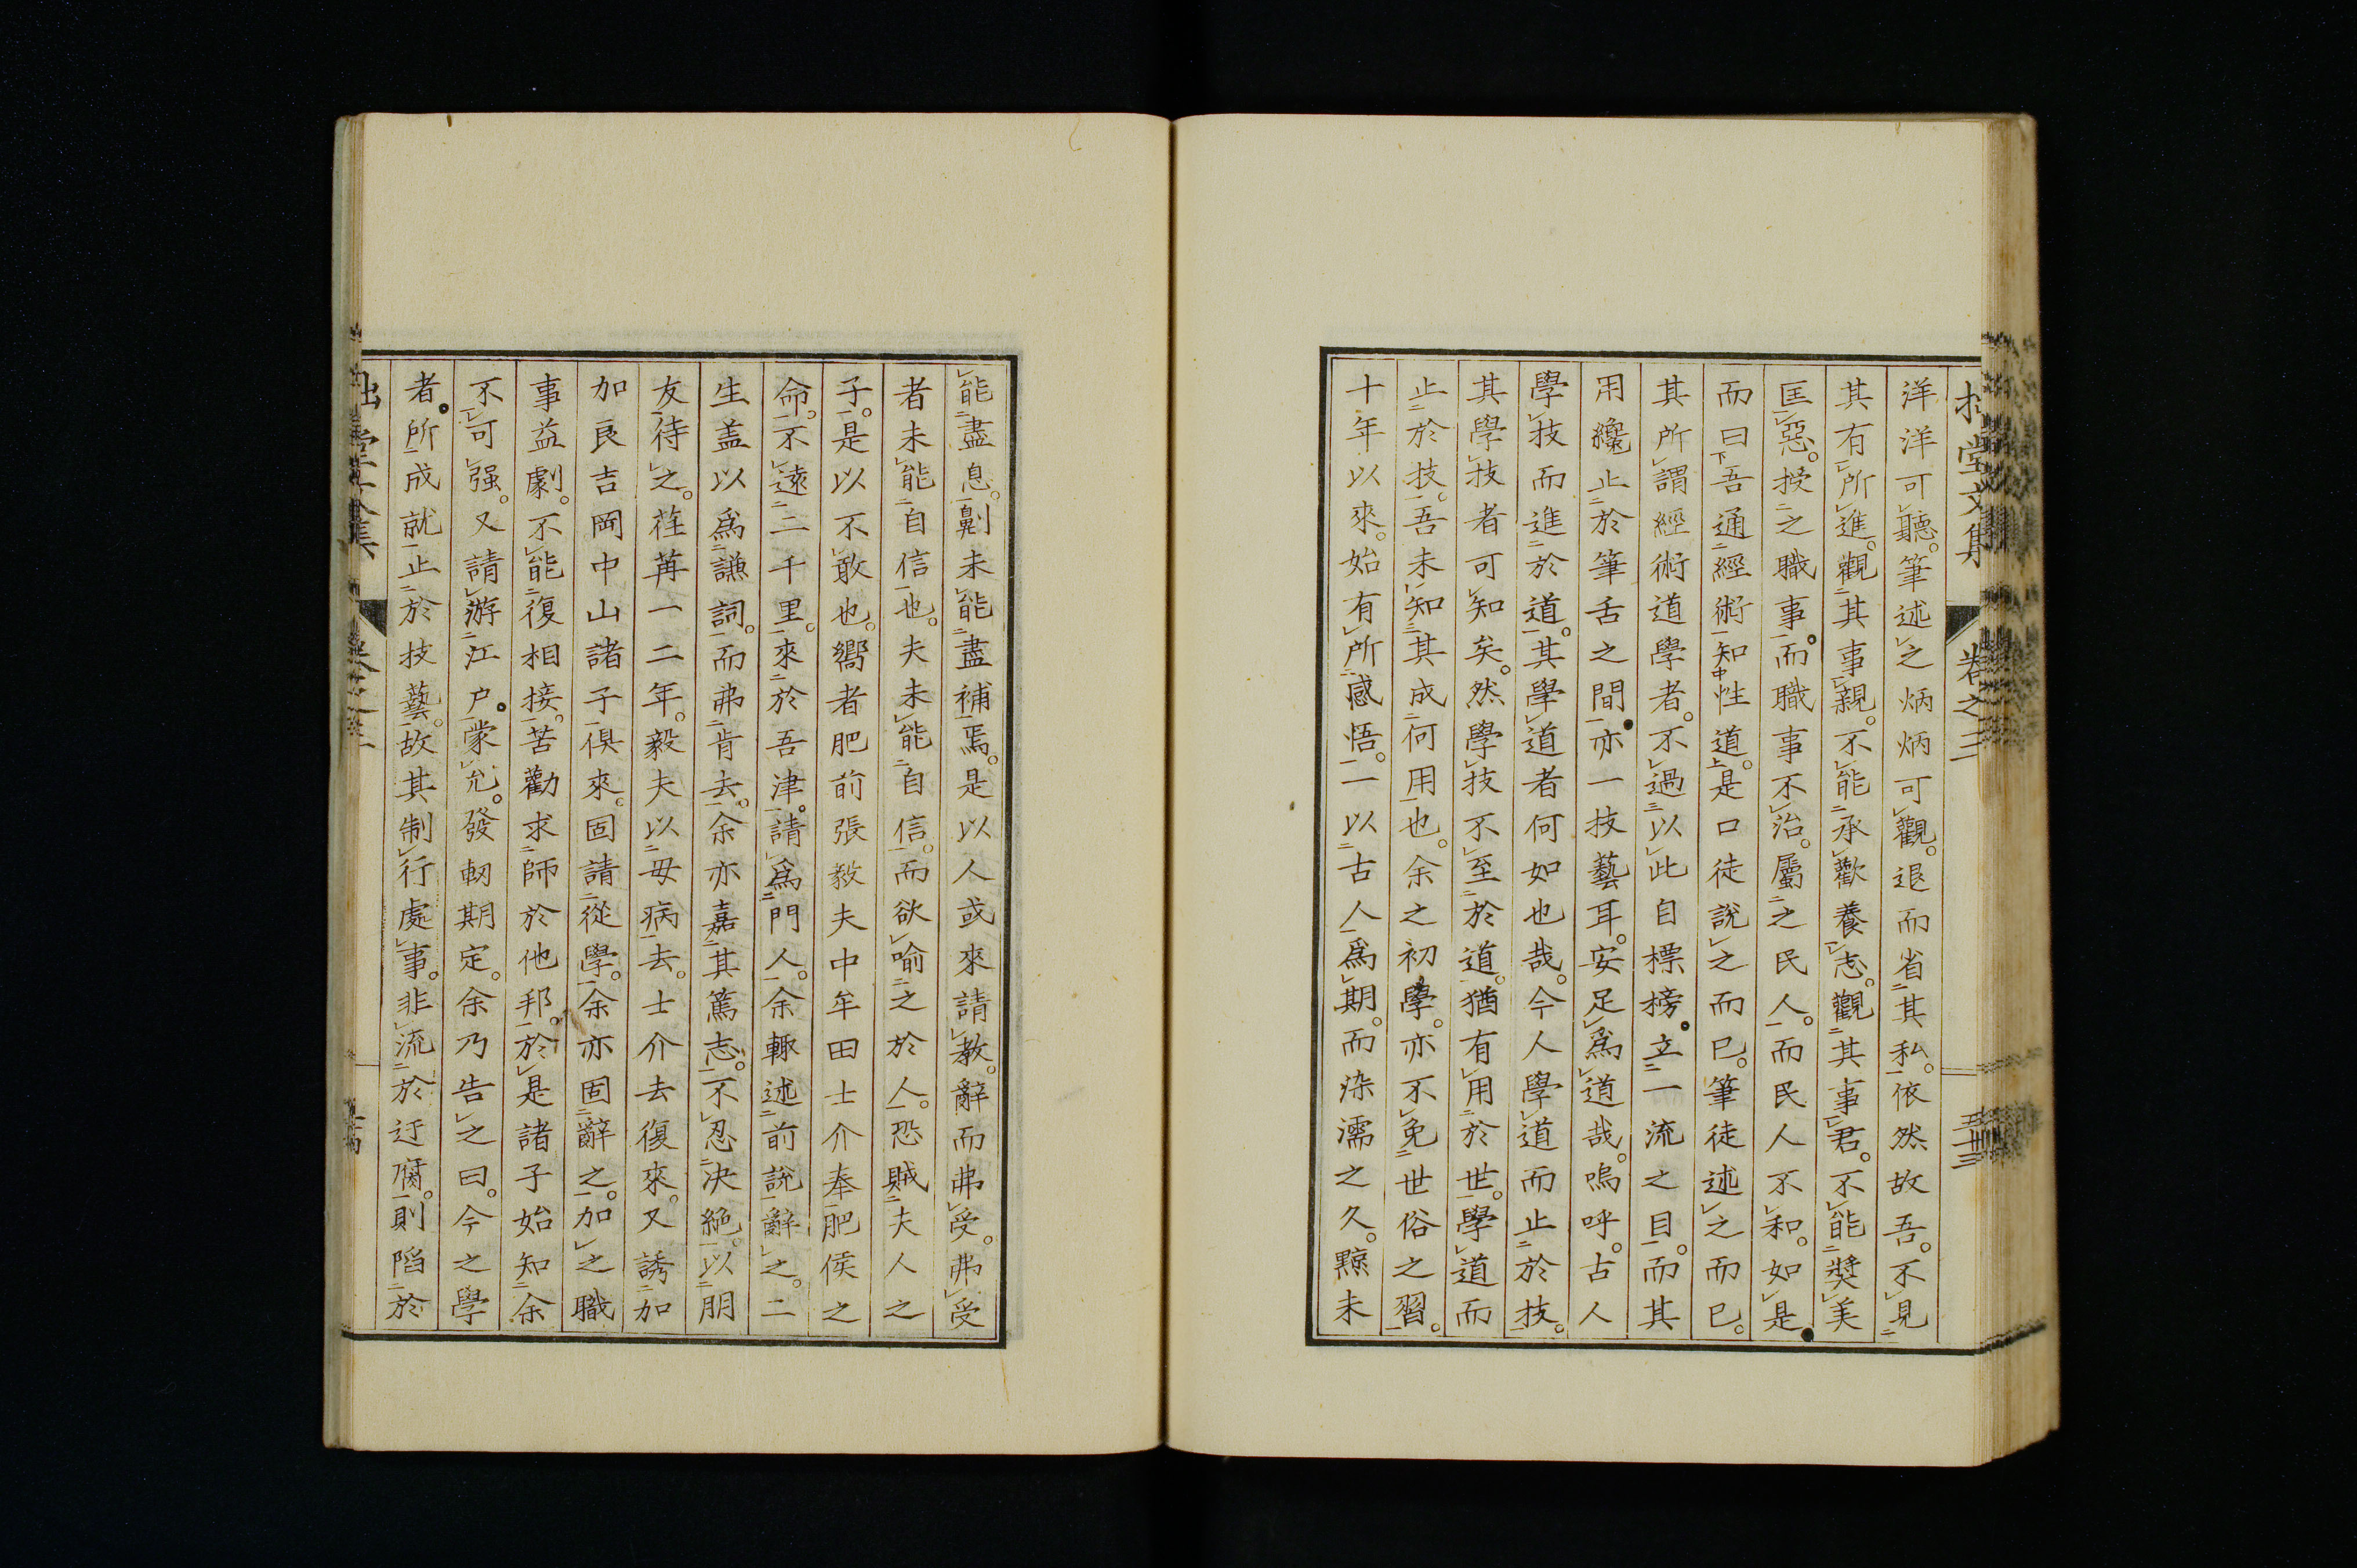 拙堂文集 卷之三 五十三
洋洋可聽。筆述之炳炳可觀。退而省其私。依然故吾。不見
其有所進。觀其事親。不能承歡養志。觀其事君。不能獎美
匡惡。授之職事。而職事不治。屬之民人。而民人不和。如是
而曰吾通經術知性道。是口徒說之而已。筆徒述之而已。
其所謂經術道學者。不過以此自標榜。立一流之目。而其
用纔止於筆舌之間。亦一技藝耳。安足爲道哉。嗚呼。古人
學技而進於道。其學道者何如也哉。今人學道而止於技。
其學技者可知矣。然學技不至於道。猶有用於世。學道而
止於技。吾未知其成何用也。余之初學。亦不免世俗之習。
十年以來。始有所感悟。一以古人爲期。而染濡之久。黥未
能盡息。劓未能盡補焉。是以人或來請教。辭而弗受。弗受
者未能自信也。夫未能自信。而欲喻之於人。恐賊夫人之
子。是以不敢也。嚮者肥前張毅夫中牟田士介奉肥侯之
命。不遠二千里。來於吾津。請爲門人。余輙述前說辭之。二
生盖以爲謙詞。而弗肯去。余亦嘉其篤志。不忍決絕。以朋
友待之。荏苒一二年。毅夫以母病去。士介去復來。又誘加
加良吉岡中山諸子俱來。固請從學。余亦固辭之。加之職
事益劇。不能復相接。苦勸求師於他邦。於是諸子始知余
不可强。又請游江戶。蒙允。發軔期定。余乃告之曰。今之學
者。所成就止於技藝。故其制行處事。非流於迂腐。則陷於
拙堂文集 卷之三